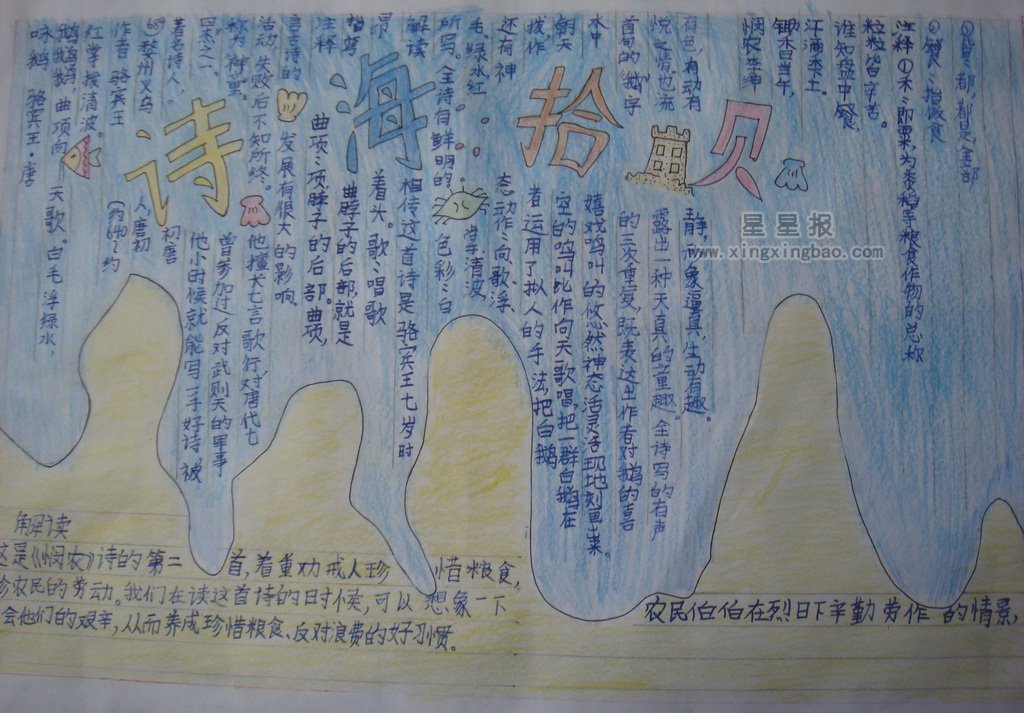 诗海拾贝
星星报
www.xingxingbao.com
咏鹅 骆宾王·唐
鹅鹅鹅,曲项向天歌。白毛浮绿水,
红掌拨清波。
作者 骆宾王(约640~约
婺州义乌人,唐初
著名诗人,初唐
四杰之一,他小时候就能写一手好诗,被
称为神童。曾参加过反对武则天的军事
活动,失败后不知所终。他擅长七言歌行,对唐代七
言诗的发展有很大的影响。
注释 曲项:项,脖子的后部。曲项,
曲脖子的后部,就是
昂着头。歌:唱歌
解读 相传这首诗是骆宾王七岁时
所写。全诗有鲜明的色彩:白
毛、绿水、红掌、清波
还有神态动作:向歌、浮、
拨。作者运用了拟人的手法,把白鹅
朝天空的鸣叫比作向天歌唱,把一群白鹅在
水中嬉戏鸣叫的悠然神态活灵活现地刻画出来。
首句的"鹅"字的三次重复,既表达出作者对鹅的喜
悦之情,也流露出一种天真的童趣。全诗写的有声
有色,有动有静,形象逼真,生动有趣。
悯农 李绅
锄禾日当午,
汗滴禾下土。
谁知盘中餐,
粒粒皆辛苦。
注释①禾:即粟,为黍稻等粮食作物的总称
②餐:指饭食
③皆:都,都是,全部
解读
这是《悯农》诗的第二首,着重劝戒人珍惜粮食,
珍农民的劳动。我们在读这首诗的日时候,可以想象一下农民伯伯在烈日下辛勤劳作的情景,
会他们的艰辛,从而养成珍惜粮食、反对浪费的好习惯。